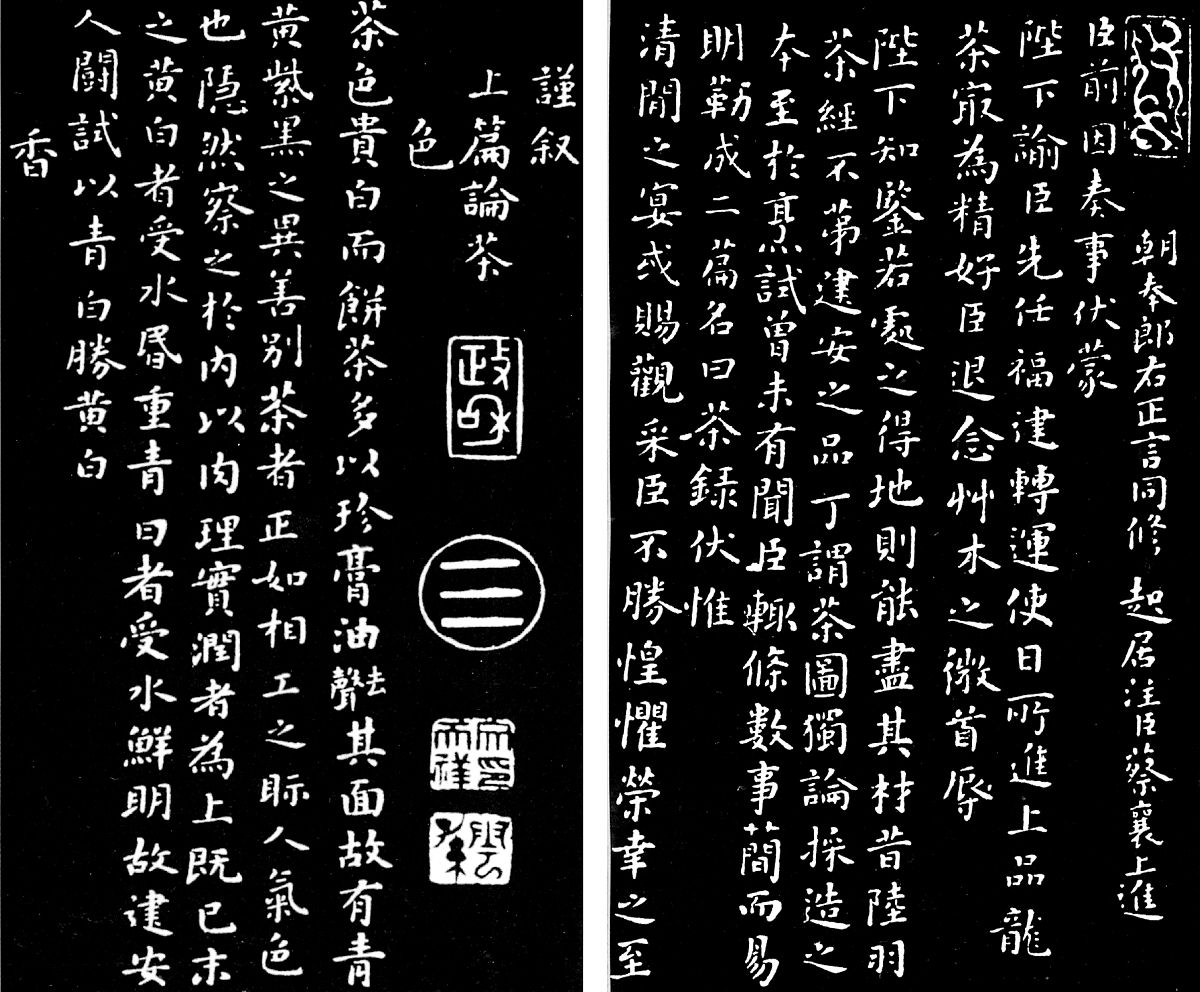 朝奉郎右正言同修起居注臣蔡襄上進
臣前因奏事伏蒙
陛下諭臣先任福建轉運使日所進上品龍
茶最為精好臣退念艸木之微首辱
陛下知鑒若處之得地則能盡其材昔陸羽
茶經不第建安之品丁謂茶圖獨論採造之
本至於烹試曾未有聞臣輒條數事簡而易
明勒成二篇名曰茶錄伏惟
清閒之宴或賜觀采臣不勝惶懼榮幸之至
謹叙
上篇論茶
色
茶色貴白而餅茶多以珍膏油去聲其面故有青
黃紫黑之異善別茶者正如相工之眎人氣色
也隱然察之於內以肉理實潤者為上既已末
之黃白者受水昏重青白者受水鮮明故建安
人鬪試以青白勝黃白
香
政和